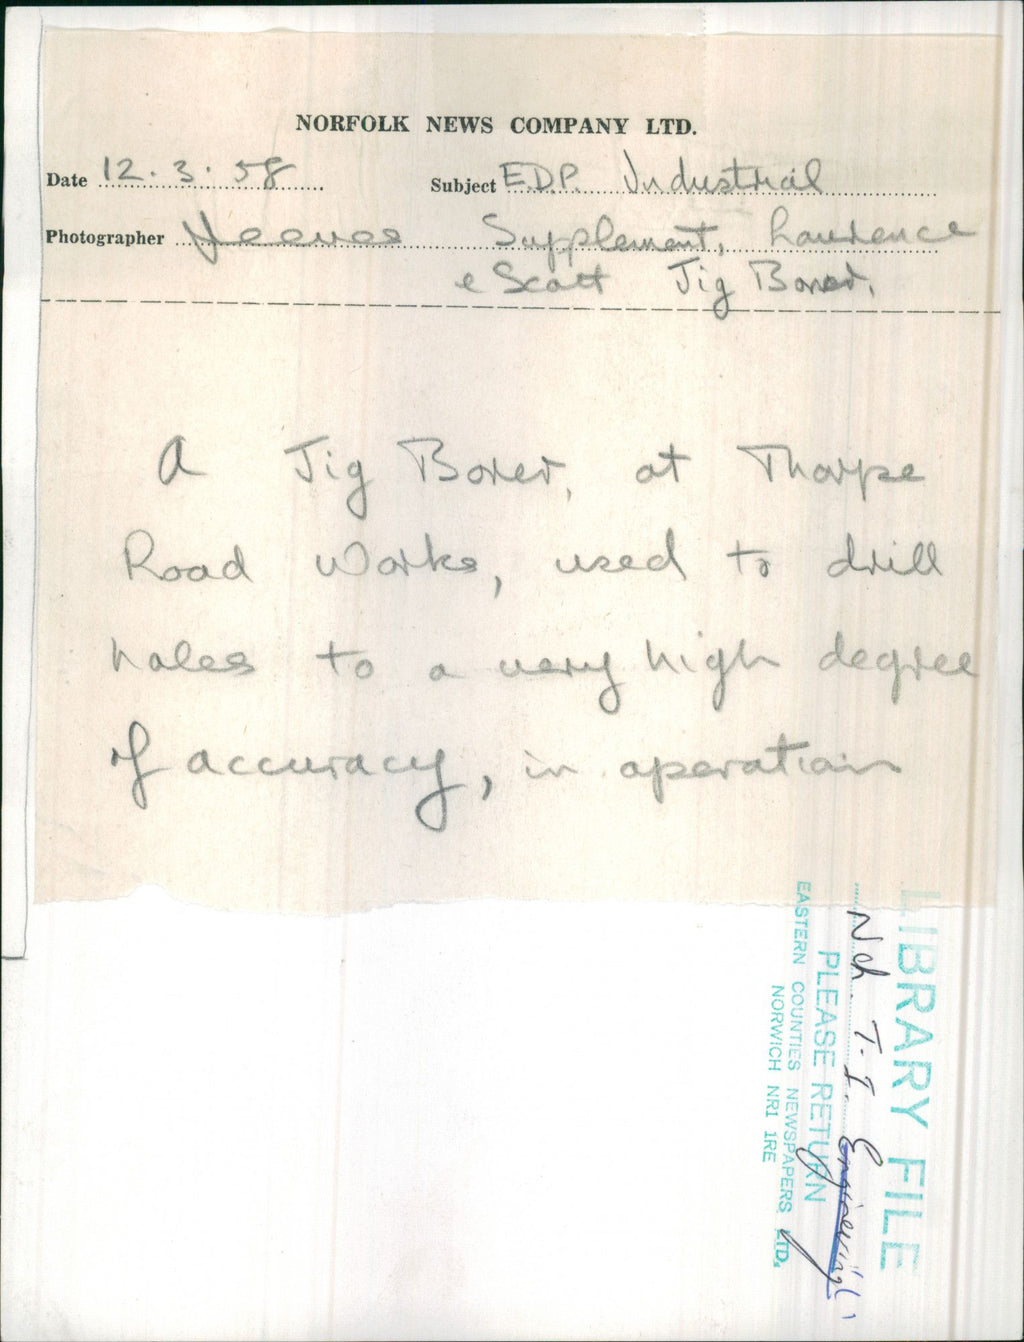 NORFOLK NEWS COMPANY LTD.
Date 12.3.58 Subject E.D.P. Industrial
Photographer Supplement, Laurence
e Scott Jig Borer.
A Jig Borer, at Thorpe
Road Works, used to drill
holes to a very high degree
of accuracy, in operation
LIBRARY FILE
Nch. T.I. Engineering
PLEASE RETURN
EASTERN COUNTIES NEWSPAPERS LTD.
NORWICH NR1 1RE